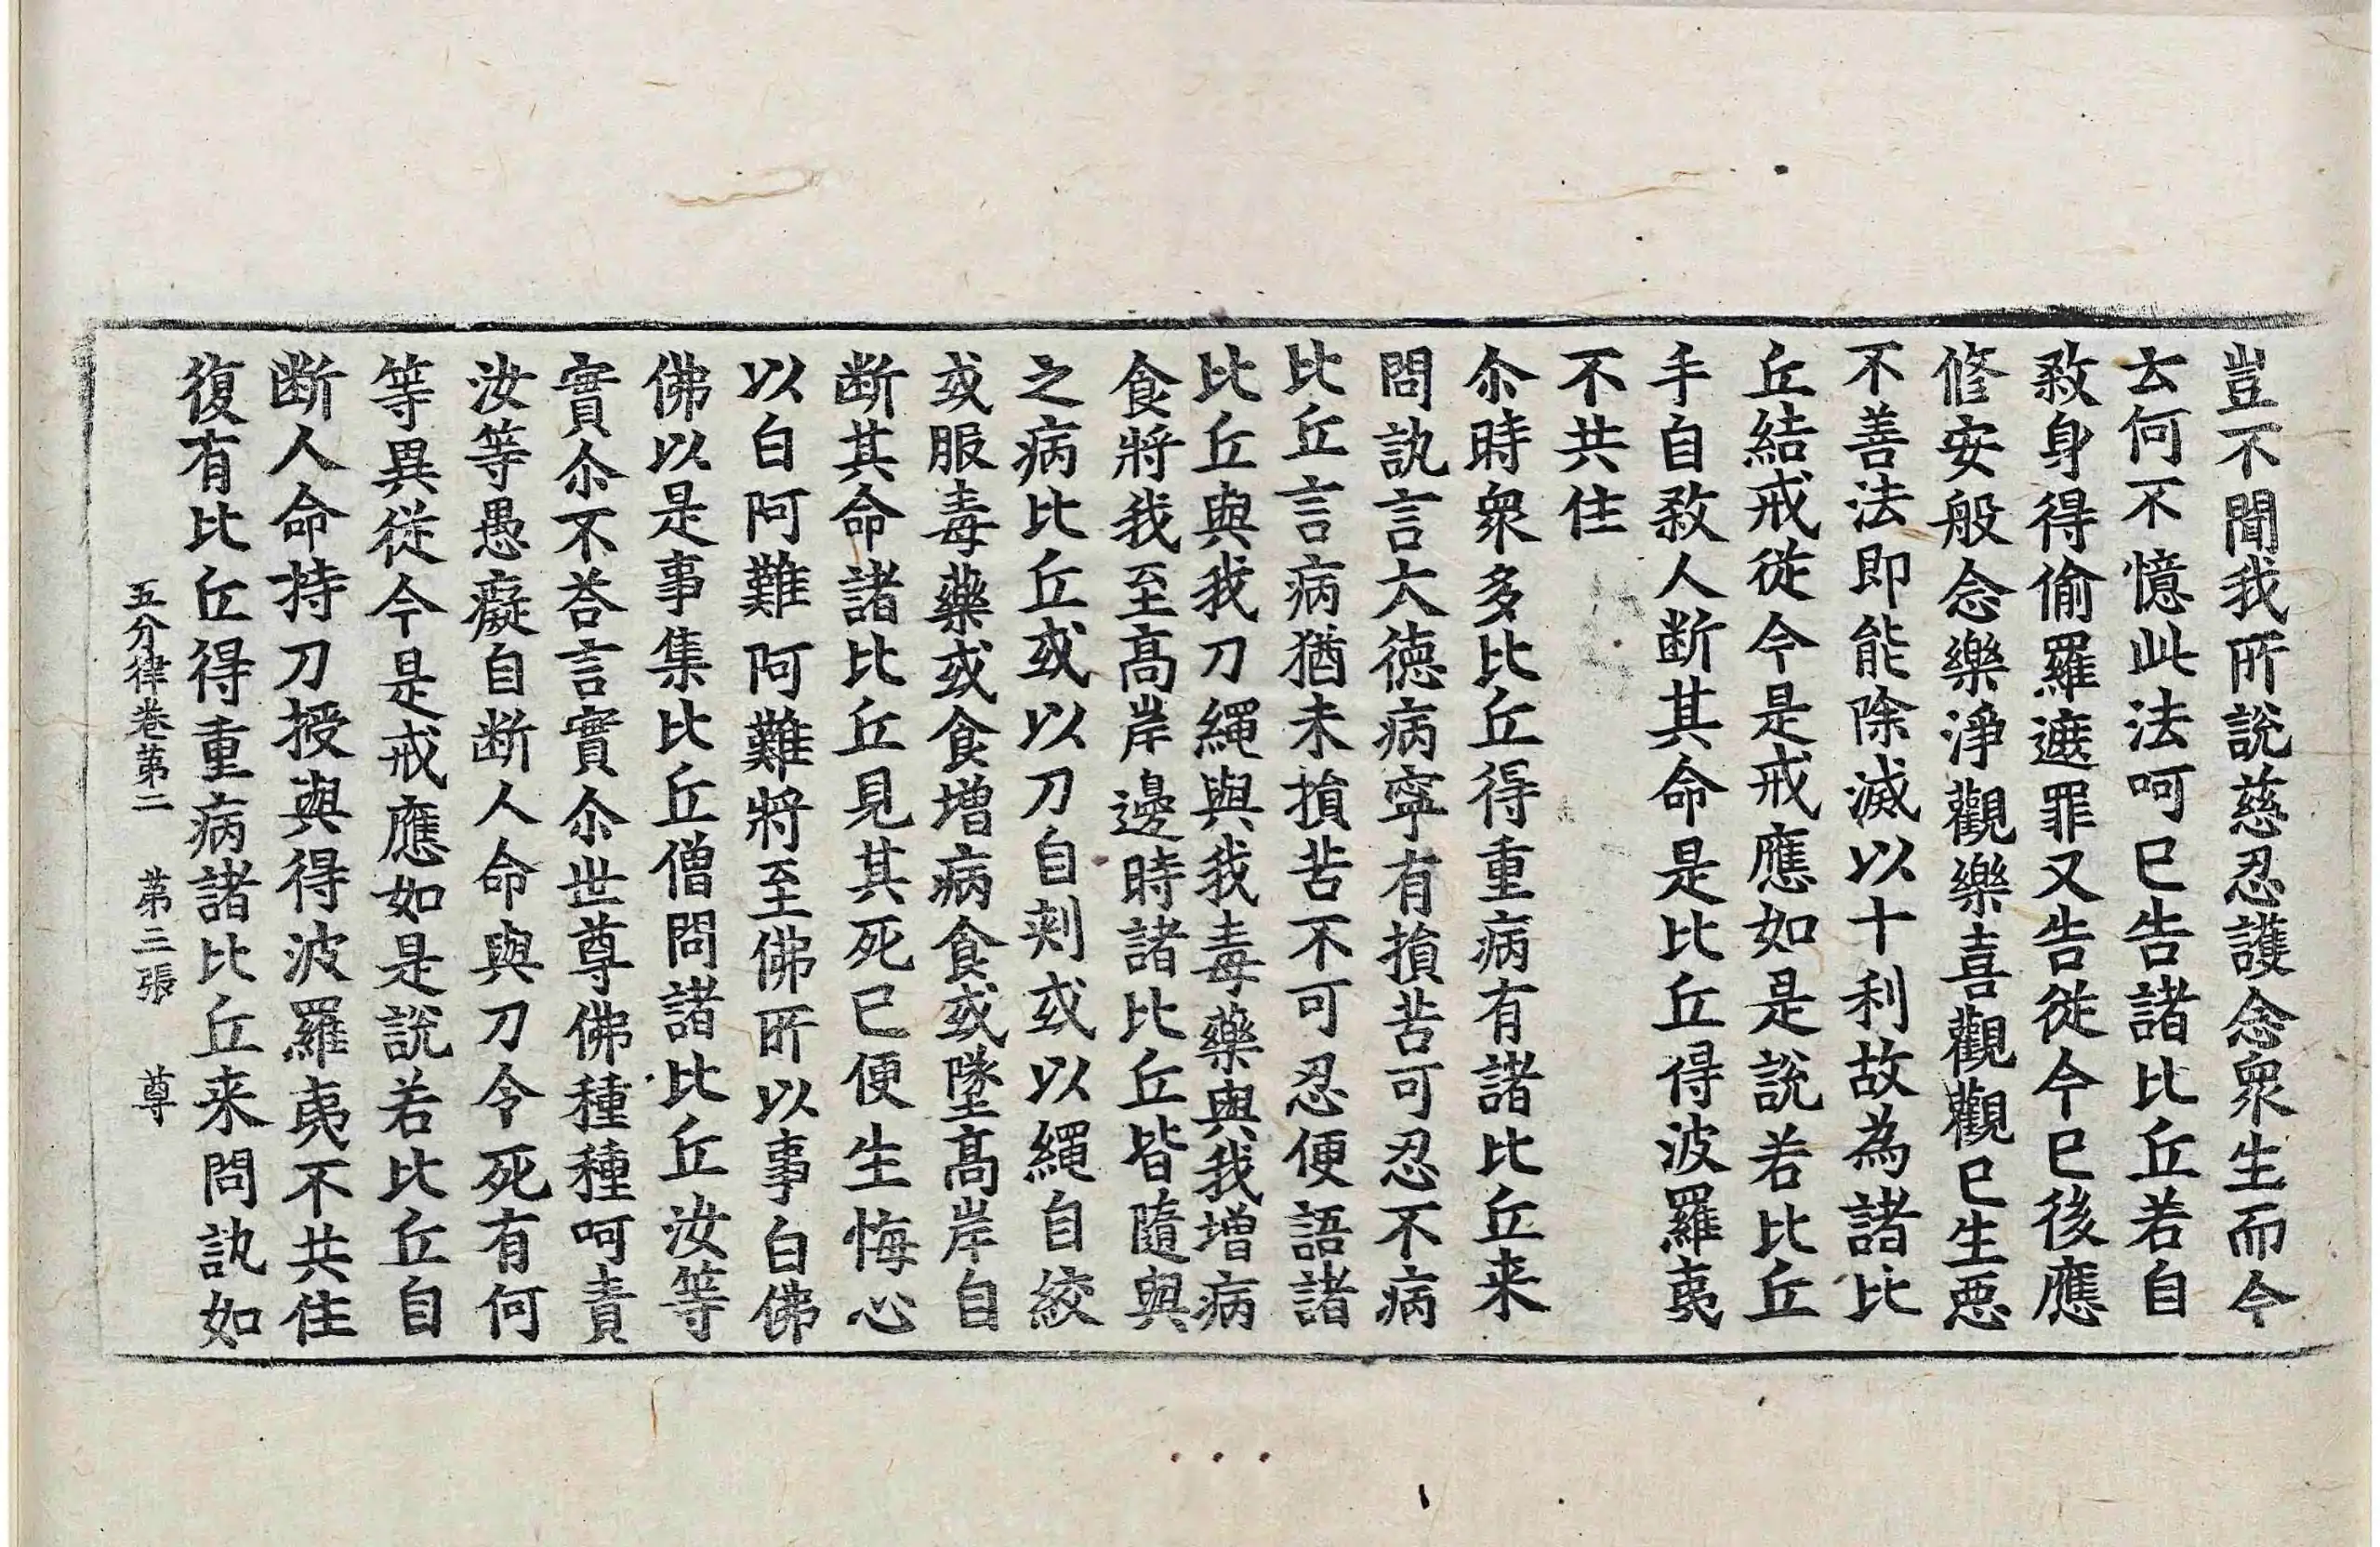 豈不聞我所說慈忍護念衆生而今
云何不憶此法呵已告諸比丘若自
敎身得偷羅遮罪又告從今已後應
修安般念樂淨觀樂喜觀觀已生惡
不善法即能除滅以十利故為諸比
丘結戒從今是戒應如是說若比丘
手自敎人断其命是比丘得波羅夷
不共住
尒時衆多比丘得重病有諸比丘来
問訊言大德病寧有損苦可忍不病
比丘言病猶未損苦不可忍便語諸
比丘與我刀繩與我毒藥與我增病
食將我至高岸邊時諸比丘皆隨與
之病比丘或以刀自刾或以繩自絞
或服毒藥或食增病食或墜高岸自
断其命諸比丘見其死已便生悔心
以白阿難阿難將至佛所以事白佛
佛以是事集比丘僧問諸比丘汝等
實尒不荅言實尒世尊佛種種呵責
汝等愚癡自断人命與刀令死有何
等異從今是戒應如是說若比丘自
断人命持刀授與得波羅夷不共住
復有比丘得重病諸比丘来問訊如
五分律卷第二 第三張 尊